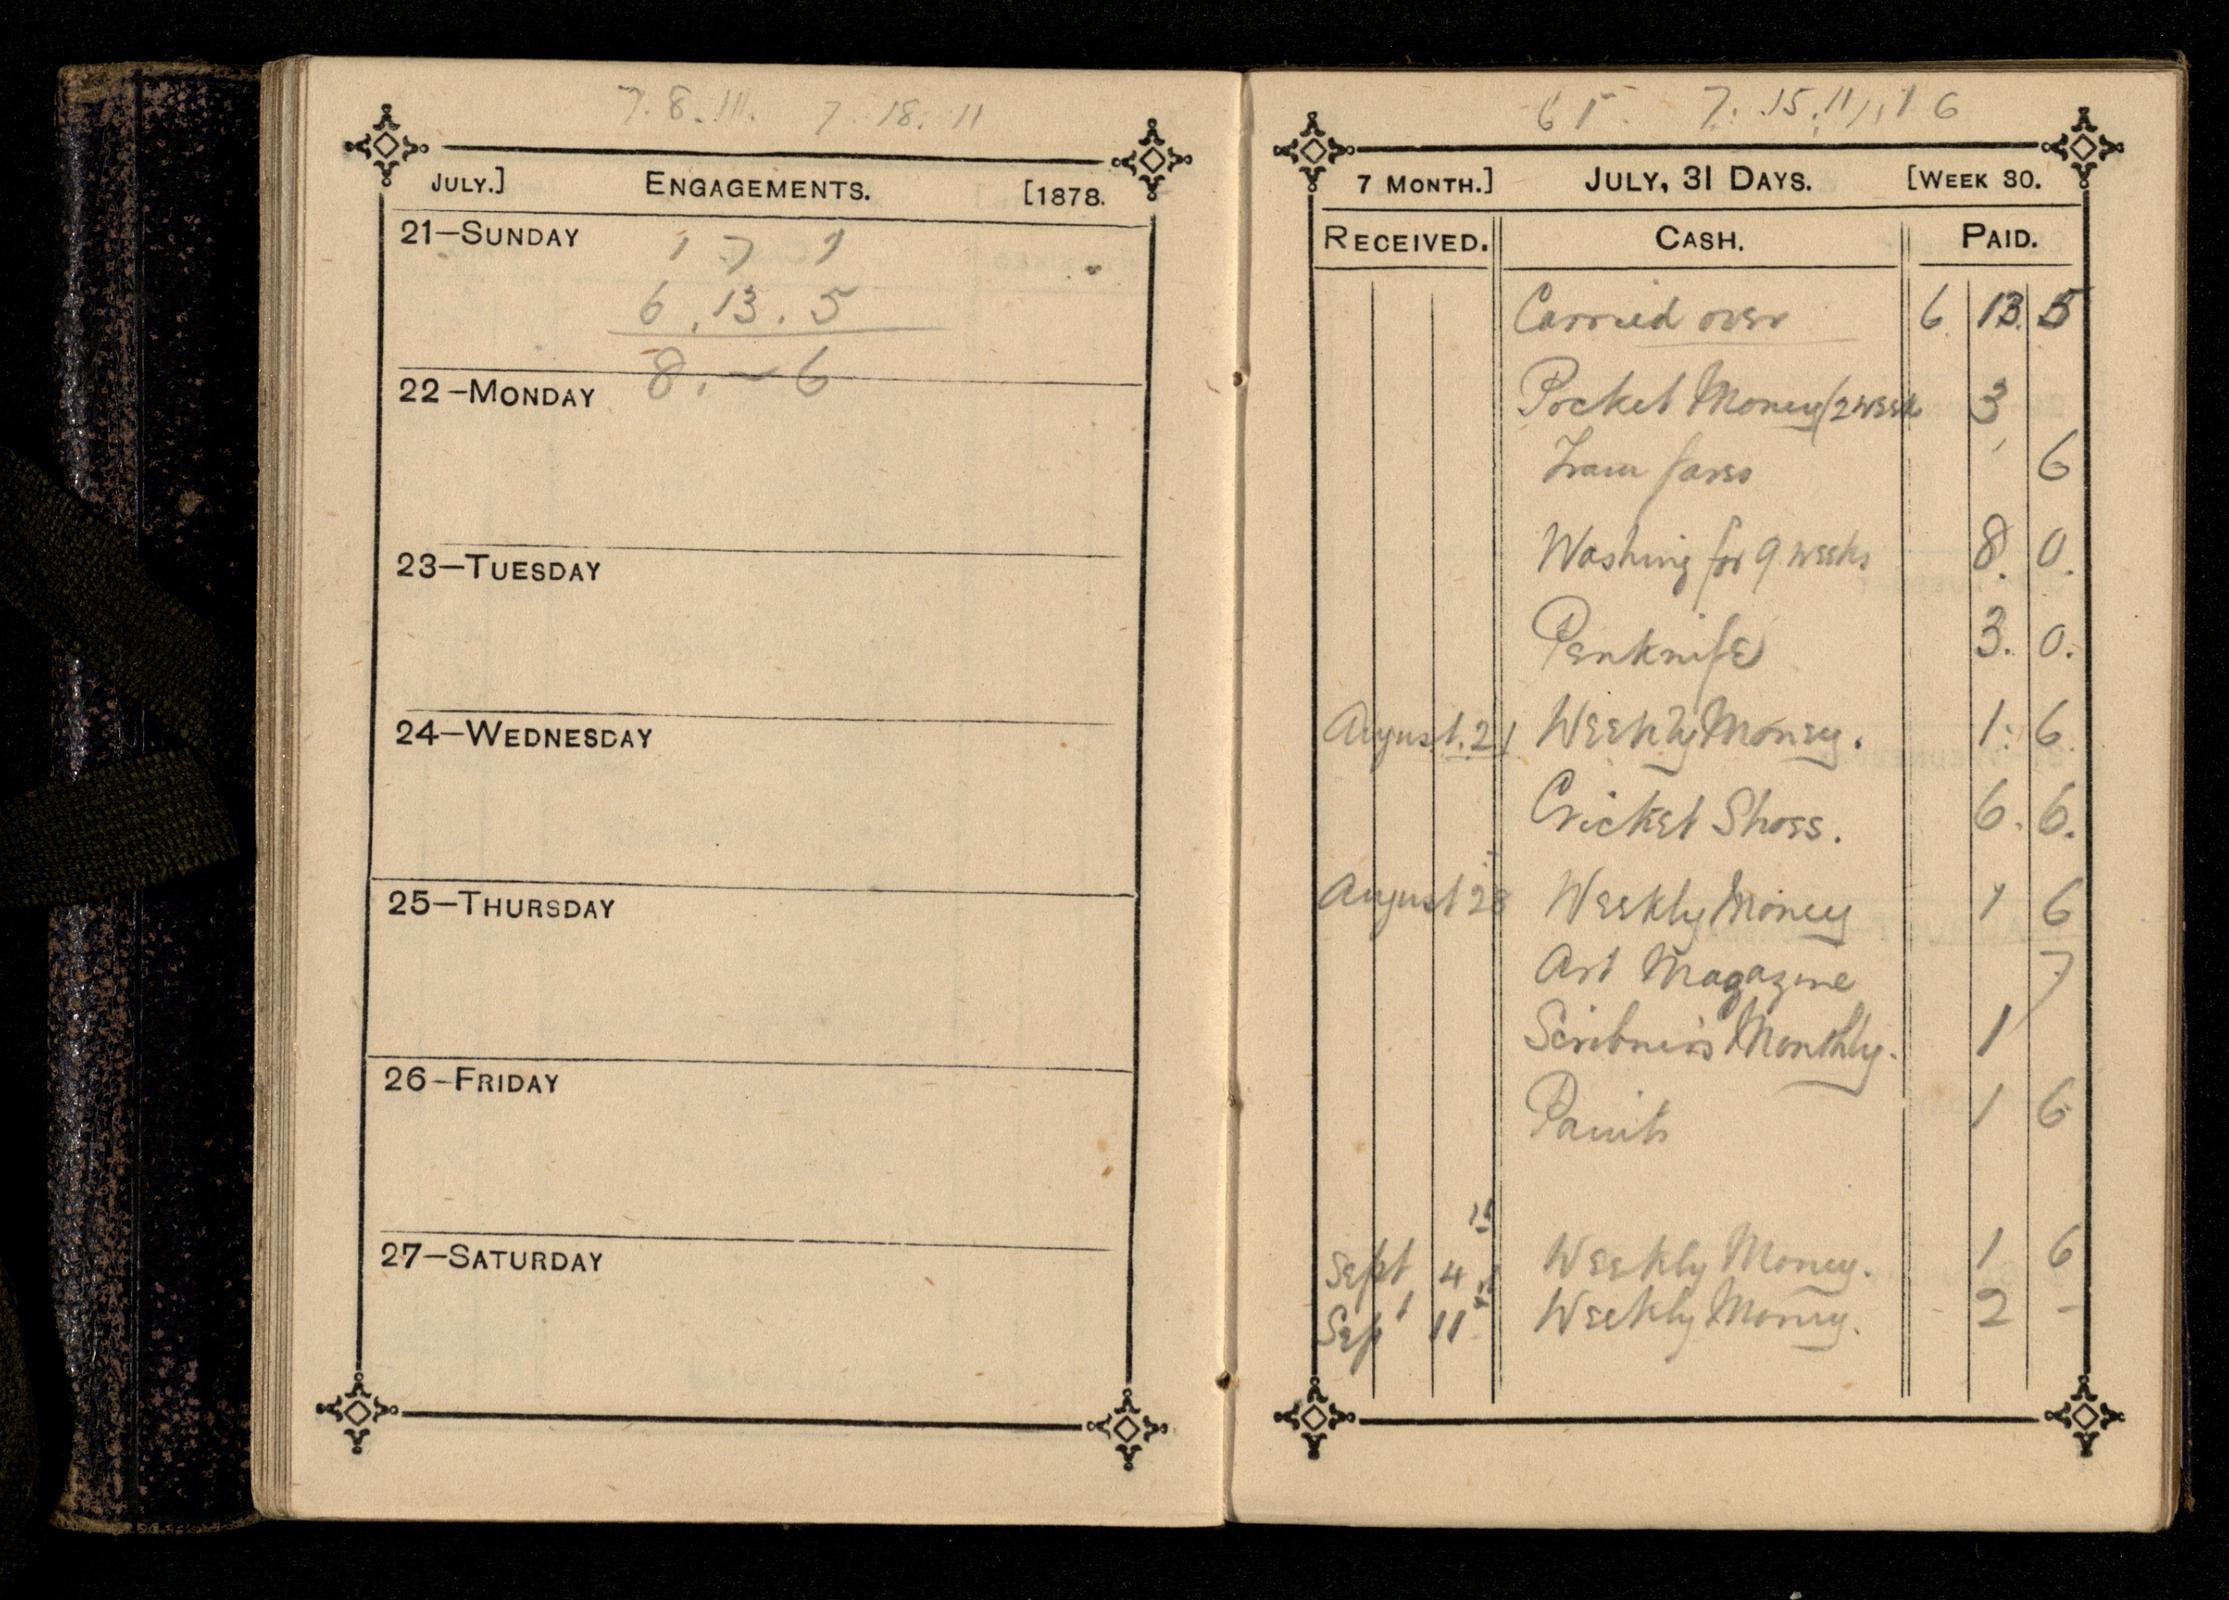 7. 8. 11. 7. 18. 11
JULY.] ENGAGEMENTS. [1878.
21—SUNDAY
1 7 1
6. 13. 5
8. ~ 6
22—MONDAY
23—TUESDAY
24—WEDNESDAY
25—THURSDAY
26—FRIDAY
27—SATURDAY
7. 15. 11 1 6
7 MONTH.] JULY, 31 DAYS. [WEEK 30.
RECEIVED. CASH. PAID.
Carried over 6. 13. 5
Pocket Money (2 week 3
Tram fares 6
Washing for 9 weeks 8. 0.
Penknife 3. 0.
August. 21 Weekly Money. 1. 6.
Cricket Shoes. 6. 6.
August 28 Weekly Money 1 6
Art Magazine 7
Scribner's Monthly. 1
Paints 1 6
Sept 4 Weekly Money. 1 6
Sept 11 Weekly Money. 2 -